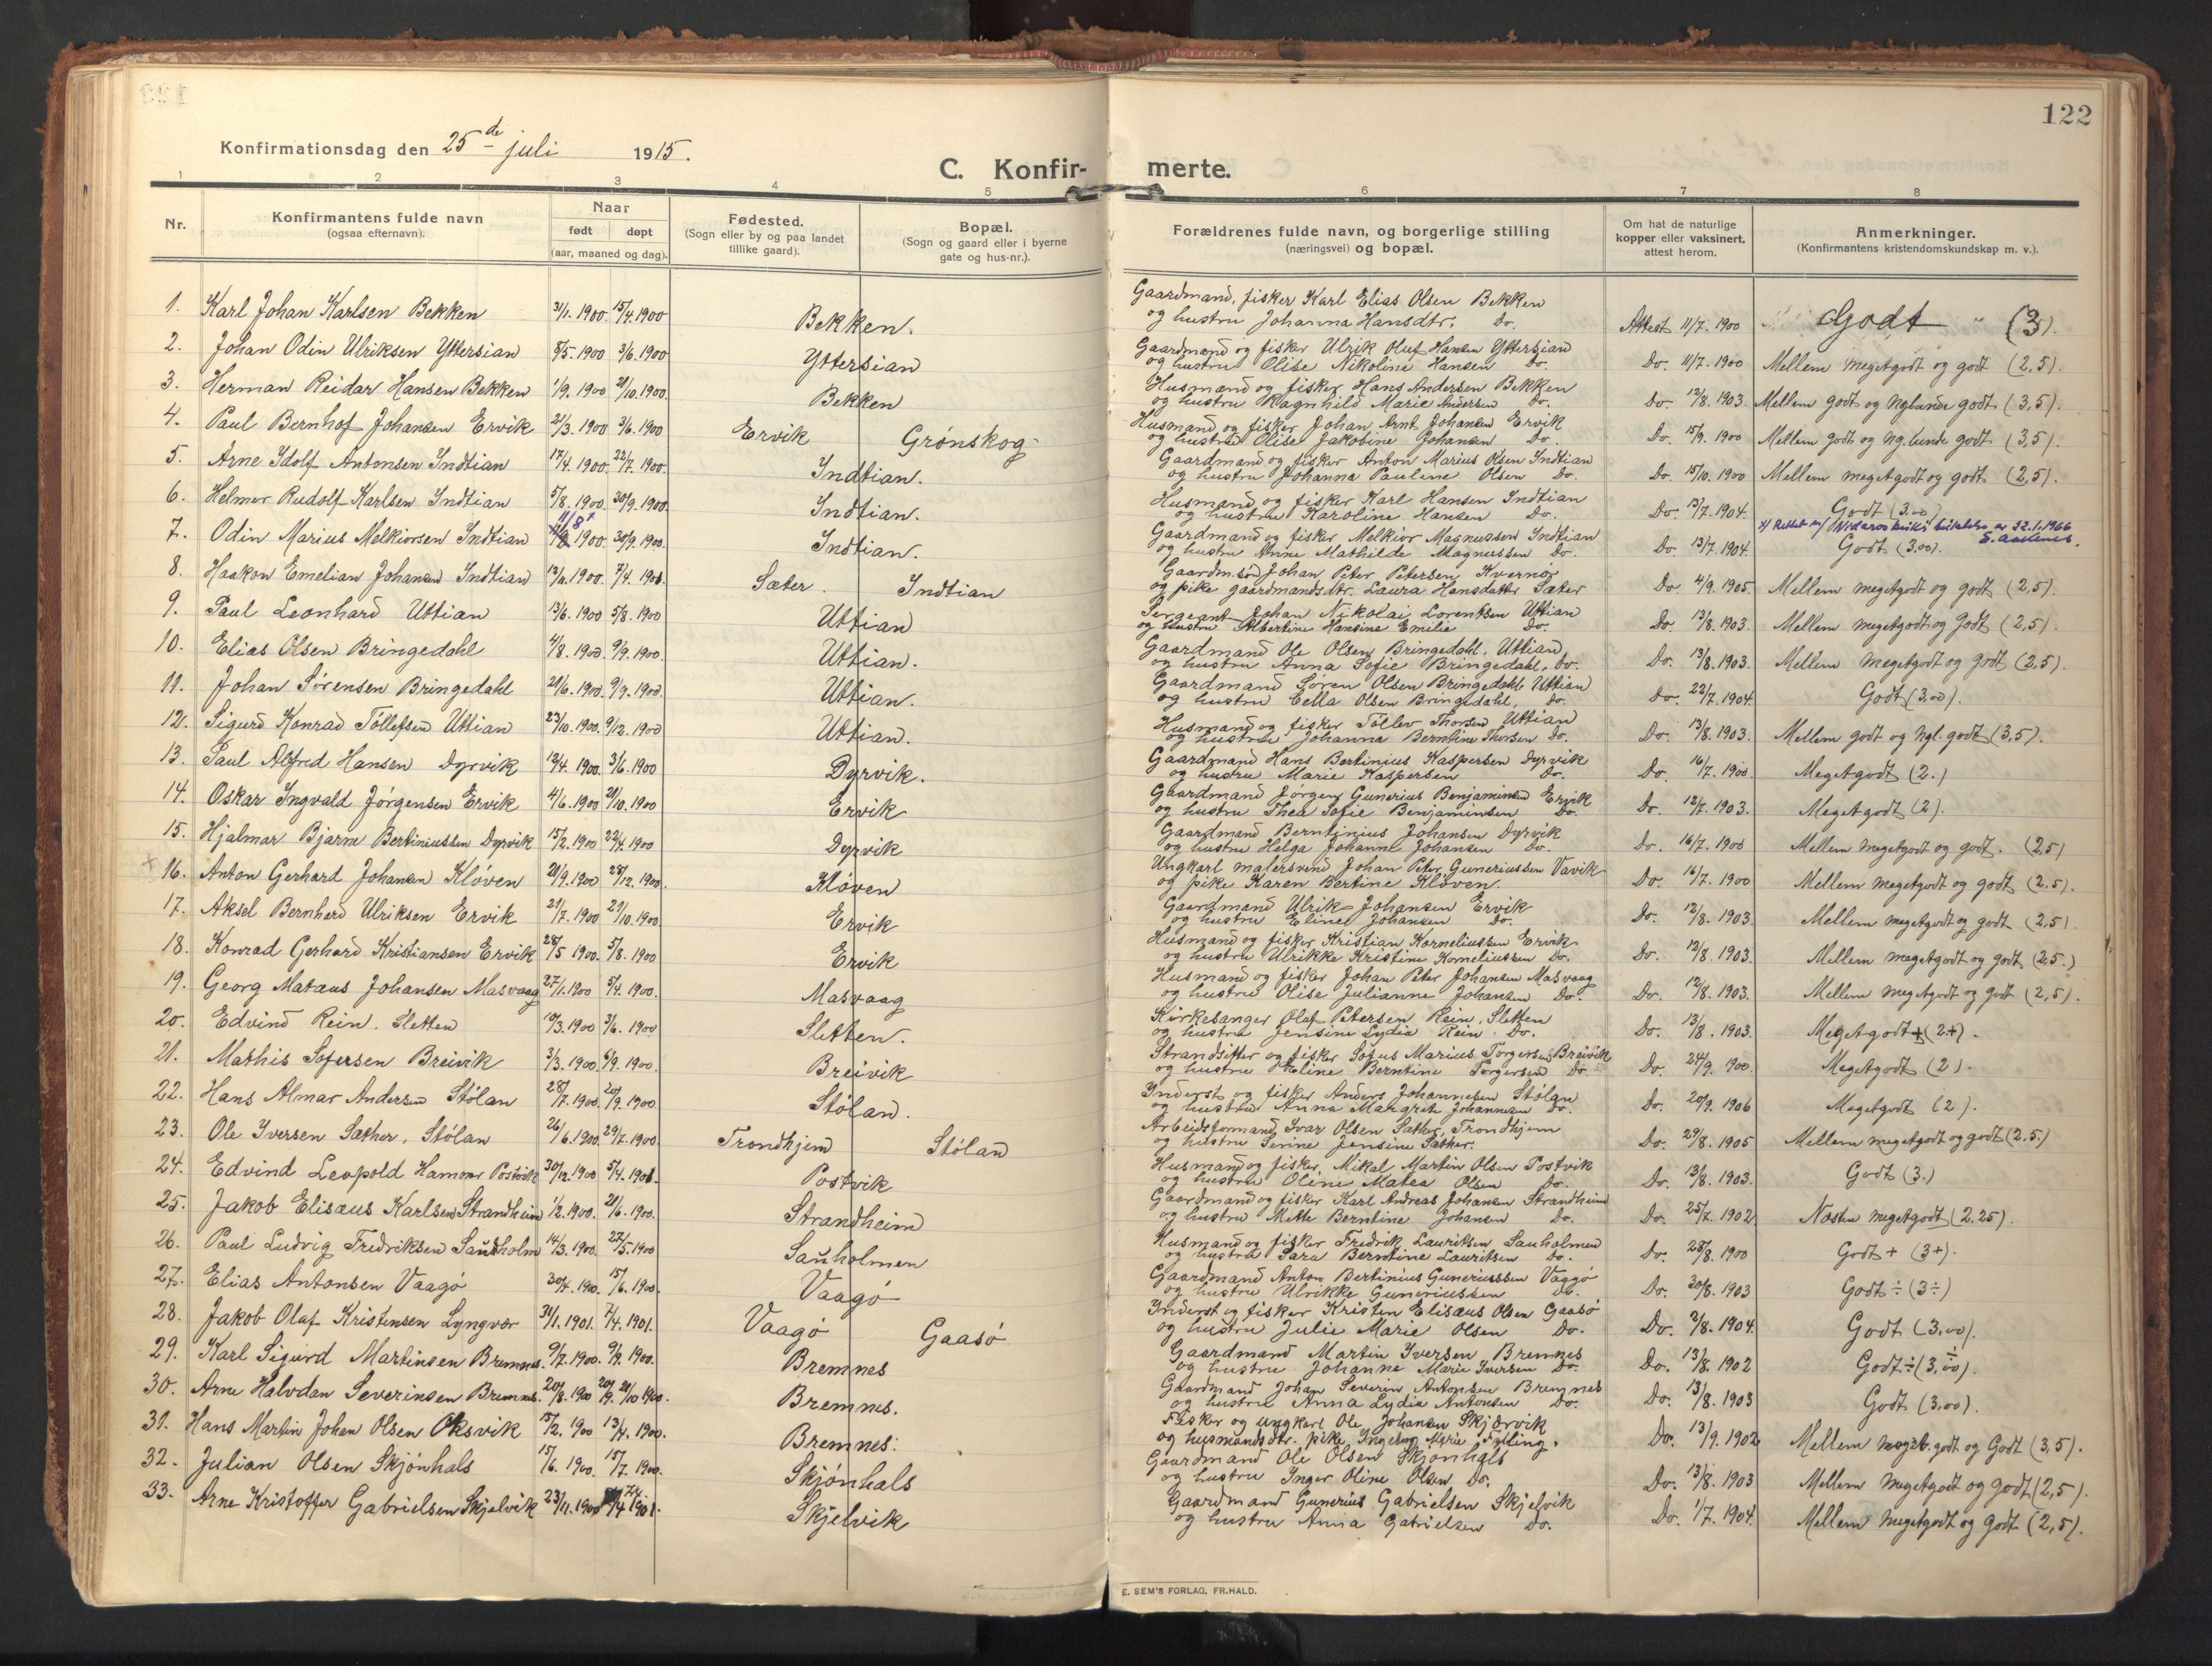 122
Konfirmationsdag den 25de juli 1915.
C. Konfir- merte.
1 2 3 4 5 6 7 8
Nr. Konfirmantens fulde navn (ogsaa efternavn). Naar født døpt (aar, maaned og dag). Fødested. (Sogn eller by og paa landet tillike gaard). Bopæl. (Sogn og gaard eller i byerne gate og hus-nr.). Forældrenes fulde navn, og borgerlige stilling (næringsvei) og bopæl. Om hat de naturlige kopper eller vaksinert, attest herom. Anmerkninger. (Konfirmantens kristendomskundskap m. v.).
1. Karl Johan Karlsen Bekken 31/1. 1900. 15/4. 1900 Bekken. Gaardmand, fisker Karl Elias Olsen Bekken
og hustru Johanna Hansdtr. Do. Attest 11/7. 1900 Godt (3).
2. Johan Odin Ulriksen Yttersian 8/5. 1900 3/6. 1900 Yttersian Gaardmand og fisker Ulrik Oluf Hansen Yttersian
og hustru Olise Nikoline Hansen Do. Do. 11/7. 1900 Mellem megetgodt og godt (2,5).
3. Herman Reidar Hansen Bekken 1/9. 1900 21/10. 1900. Bekken Husmand og fisker Hans Andersen Bekken
og hustru Ragnhild Marie Andersen Do. Do. 12/8. 1903. Mellem godt og Nglunde godt (3,5).
4. Paul Bernhof Johansen Ervik 21/3. 1900 3/6. 1900 Ervik Grønskog Husmand og fisker Johan Arnt Johansen Ervik
og hustru Olise Jakobine Johansen Do. Do. 15/9. 1900 Mellem godt og Ng.lunde godt (3,5).
5. Arne Idolf Antonsen Indtian 17/4. 1900. 22/7. 1900. Indtian. Gaardmand og fisker Anton Marius Olsen Indtian
og hustru Johanna Pauline Olsen Do. Do. 15/10. 1900 Mellem megetgodt og godt (2,5).
6. Helmer Rudolf Karlsen Indtian 5/8. 1900. 30/9. 1900. Indtian. Husmand og fisker Karl Hansen Indtian
og hustru Karoline Hansen Do. Do. 13/7. 1904. Godt (3.00)
7. Odin Marius Melkiorsen Indtian 11/8 x 1900. 30/9. 1900. Indtian. Gaardmand og fisker Melkior Magnussen Indtian
og hustru Anne Mathilde Magnussen Do. Do. 13/7. 1904. x) Rettet av Nidaros
Godt (3.00).
8. Haakon Emelian Johansen Indtian 12/11. 1900. 7/4. 1901. Sæter. Indtian Gaardm.søn Johan Peter Petersen Kvernø
og pike gaardmandsdtr. Laura Hansdatter Sæter Do. 4/9. 1905. Mellem megetgodt og godt (2,5).
9. Paul Leonhard Uttian 13/6. 1900 5/8. 1900 Uttian Sergeant Johan Nikolai Lorentsen Uttian
og hustru Albertine Hansine Emelie Do. Do. 13/8. 1903. Mellem megetgodt og Godt (2,5).
10. Elias Olsen Bringedahl 4/8. 1900. 9/9. 1900. Uttian. Gaardmand Ole Olsen Bringedahl, Uttian
og hustru Anna Sofie Bringedahl, Do. Do. 13/8. 1903. Mellem megetgodt og godt (2,5).
11. Johan Sørensen Bringedahl 21/6. 1900. 9/9. 1900. Uttian. Gaardmand Søren Olsen Bringedahl, Uttian
og hustru Ella Olsen Bringedahl, Do. Do. 22/7. 1904. Godt (3.00).
12. Sigurd Konrad Tollefsen Uttian 23/10. 1900. 9/12. 1900 Uttian. Husmand og fisker Tollev Thorsen Uttian
og hustru Johanna Berntine Thorsen Do. Do. 13/8. 1903. Mellem godt og Ngl. godt (3,5).
13. Paul Alfred Hansen Dyrvik 12/4. 1900. 3/6. 1900 Dyrvik. Gaardmand Hans Bertinius Kaspersen Dyrvik
og hustru Marie Kaspersen Do. Do. 16/7. 1900 Megetgodt (2.)
14. Oskar Ingvald Jørgensen Ervik 4/6. 1900 21/10. 1900 Ervik Gaardmand Jørgen Gunerius Benjaminsen Ervik
og hustru Thea Sofie Benjaminsen Do. Do. 12/7. 1903. Megetgodt (2).
15. Hjalmar Bjarne Bertiniussen Dyrvik 15/2. 1900 22/4. 1900 Dyrvik Gaardmand Berntinius Johansen Dyrvik
og hustru Helga Johanne Johansen Do. Do. 16/7. 1900 Mellem megetgodt og godt. (2,5)
x 16. Anton Gerhard Johansen Kløven 21/9. 1900 28/12. 1900. Kløven Ungkarl malersvend Johan Peter Guneriussen Vavik
og pike Karen Bertine Kløven. Do. 16/7. 1900 Mellem megetgodt og godt (2,5).
17. Aksel Bernhard Ulriksen Ervik 29/7. 1900 21/10. 1900 Ervik Gaardmand Ulrik Johansen Ervik
og hustru Eline Johansen Do. Do. 12/8. 1903. Mellem megetgodt og godt (2,5).
18. Konrad Gerhard Kristiansen Ervik 28/5 1900. 5/8. 1900 Ervik Husmand og fisker Kristian Korneliussen Ervik
og hustru Ulrikke Kristine Korneliussen Do. Do. 12/8. 1903. Mellem megetgodt og godt (2,5.)
19. Georg Matæus Johansen Masvaag 27/1. 1900 5/4. 1900. Masvaag Husmand og fisker Johan Peter Johansen Masvaag
og hustru Olise Julianne Johansen Do. Do. 12/8. 1903. Mellem megetgodt og godt (2,5).
20. Edvind Rein. Sletten 10/3. 1900 3/6. 1900 Sletten. Kirkesanger Olaf Petersen Rein, Sletten
og hustru Jensine Lydia Rein Do. Do. 13/8. 1903. Megetgodt+ (2+).
21. Mathis Sofersen Breivik 3/3. 1900. 6/9. 1900. Breivik Strandsitter og fisker Sofus Marius Torgersen Breivik
og hustru Eline Berntine Torgersen Do. Do. 24/9. 1900. Megetgodt (2).
22. Hans Almar Andersen Stølan 28/7. 1900. 20/9. 1900 Stølan. Inderst og fisker Anders Johannesen Stølan
og hustru Anna Margrete Johannesen Do. Do. 20/9. 1906 Megetgodt (2).
23. Ole Iversen Sæther, Stølan 26/6. 1900. 29/7. 1900. Trondhjem Stølan Arbeidsformand Ivar Olsen Sæther, Trondhjem
og hustru Serine Jensine Sæther. Do. 29/8. 1905 Mellem megetgodt og godt (2,5.)
24. Edvind Leopold Hammer Postvik 30/12. 1900 5/4. 1901. Postvik Husmand og fisker, Mikal Martin Olsen Postvik
og hustru Oline Matea Olsen Do. Do. 13/8. 1903. Godt (3.)
25. Jakob Elisæus Karlsen Strandheim 1/2. 1900. 21/6. 1900. Strandheim Gaardmand og fisker Karl Andreas Johansen Strandheim
og hustru Mette Berntine Johansen Do. Do. 25/7. 1902 Næsten megetgodt (2,25).
26. Paul Ludvig Fredriksen Sandholm 14/3. 1900. 27/5. 1900 Sauholmen Husmand og fisker Fredrik Lauritsen Sauholmen
og hustru Sara Berntine Lauritsen Do. Do. 28/8. 1900 Godt + (3+).
27. Elias Antonsen Vaagø 30/4. 1900. 15/6. 1900. Vaagø Gaardmand Anton Bertinius Guneriussen Vaagø
og hustru Ulrikke Guneriussen Do. Do. 30/8. 1903 Godt ÷ (3÷)
28. Jakob Olaf Kristensen Lyngvær 31/1. 1901. 7/4. 1901. Vaagø Gaasø Inderst og fisker Kristen Elisæus Olsen Gaasø
og hustru Julie Marie Olsen Do. Do. 2/8. 1904. Godt (3,00).
29. Karl Sigurd Martinsen Bremnes. 9/7. 1900. 9/9. 1900. Bremnes Gaardmand Martin Iversen Bremnes
og hustru Johanne Marie Iversen Do. Do. 13/8. 1902 Godt÷(3,00÷).
30. Arne Halvdan Severinsen Bremnes. 20/8. 1900 20/9. 21/10 1900. Bremnes. Gaardmand Johan Severin Antonsen Bremnes
og hustru Anna Lydia Antonsen Do. Do. 13/8. 1903 Godt (3,00).
31. Hans Martin Johan Olsen Oksvik 15/2. 1900 13/4. 1900. Bremnes. Fisker og ungkarl Ole Johansen Skjærvik
og husmandsdtr. pike Ingeborg Marie Fylling. Do. 13/9. 1902 Mellem godt og Godt (3,5).
32. Julian Olsen Skjønhals 15/6. 1900. 15/7. 1900. Skjønhals Gaardmand Ole Olsen Skjønhals
og hustru Inger Oline Olsen Do. Do. 13/8. 1903 Mellem Megetgodt og Godt (2,5).
33. Arne Kristoffer Gabrielsen Skjelvik 23/11. 1900 7/4 1901. Skjelvik Gaardmand Gunerius Gabrielsen Skjelvik
og hustru Anna Gabrielsen Do. Do. 1/7. 1904. Mellem Megetgodt og Godt (2,5).
E. SEM'S FORLAG, FR.HALD.